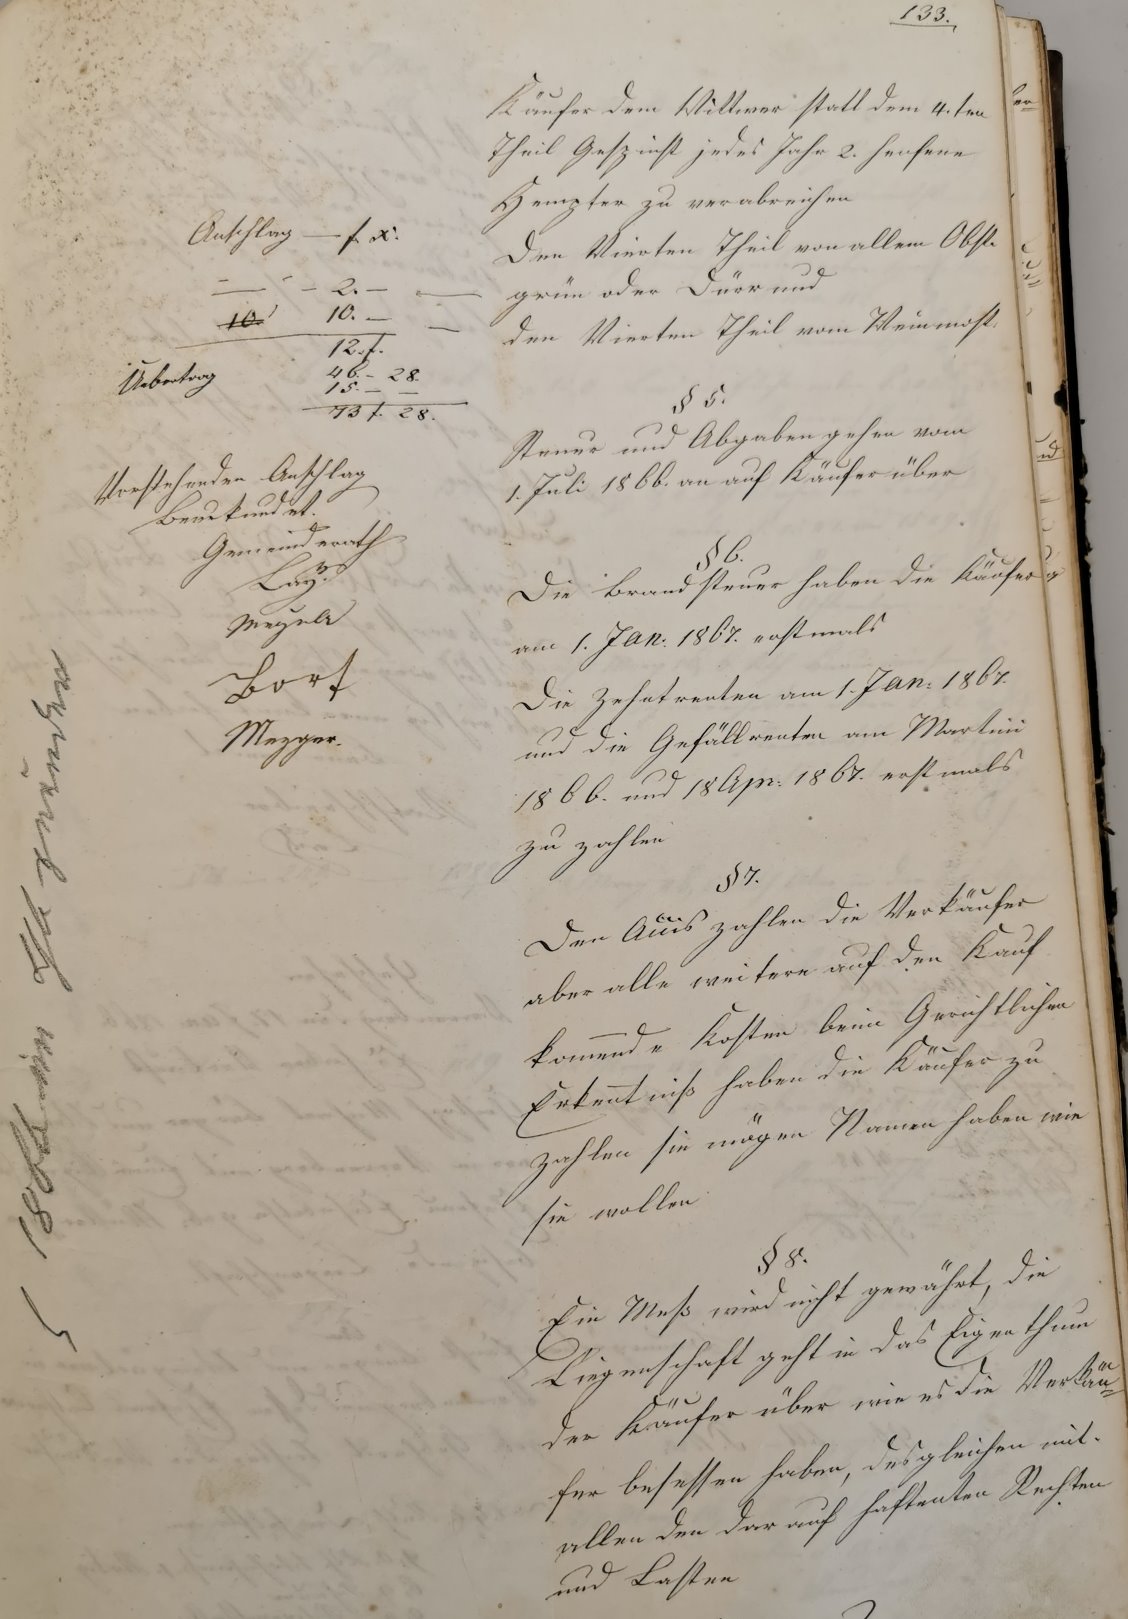 133.
Käufer dem Wittwer statt dem 4.ten
Theil Gespinst jedes Jahr 2. henfene
Hempter zu verabreichen
Den Vierten Theil von allem Obst
grün oder Dürr und
den Vierten Theil vom Weinmost.
§ 5.
Steuer und Abgaben gehen vom
1. Juli 1866. an auf Käufer über
§ 6.
Die Brandsteuer haben die Käufer
am 1. Jan: 1867. erstmals
Die Zehntrenten am 1. Jan: 1867.
und die Gefällrenten am Martini
1866. und 18 Apr: 1867. erstmals
zu zahlen
§ 7.
Den Accis zahlen die Verkäufer
aber alle weitere auf den Kauf
kommende Kosten beim Gerichtlichen
Erkentniß haben die Käufer zu
zahlen sie mögen Namen haben wie
sie wollen
§ 8.
Ein Meß wird nicht gewährt, die
Liegenschaft geht in das Eigenthum
der Käufer über wie es die Verkäu=
fer besessen haben, desgleichen mit
allen den darauf haftenten Rechten
und Lasten
Anschlag — f. x.
— - – 2. – —
10 10. – —
12. f.
Uebertrag 46. – 28.
15. – –
73 f. 28.
Vorstehenden Anschlag
Beurkundet.
Gemeinderath
Lay.
Bort
Mezger.